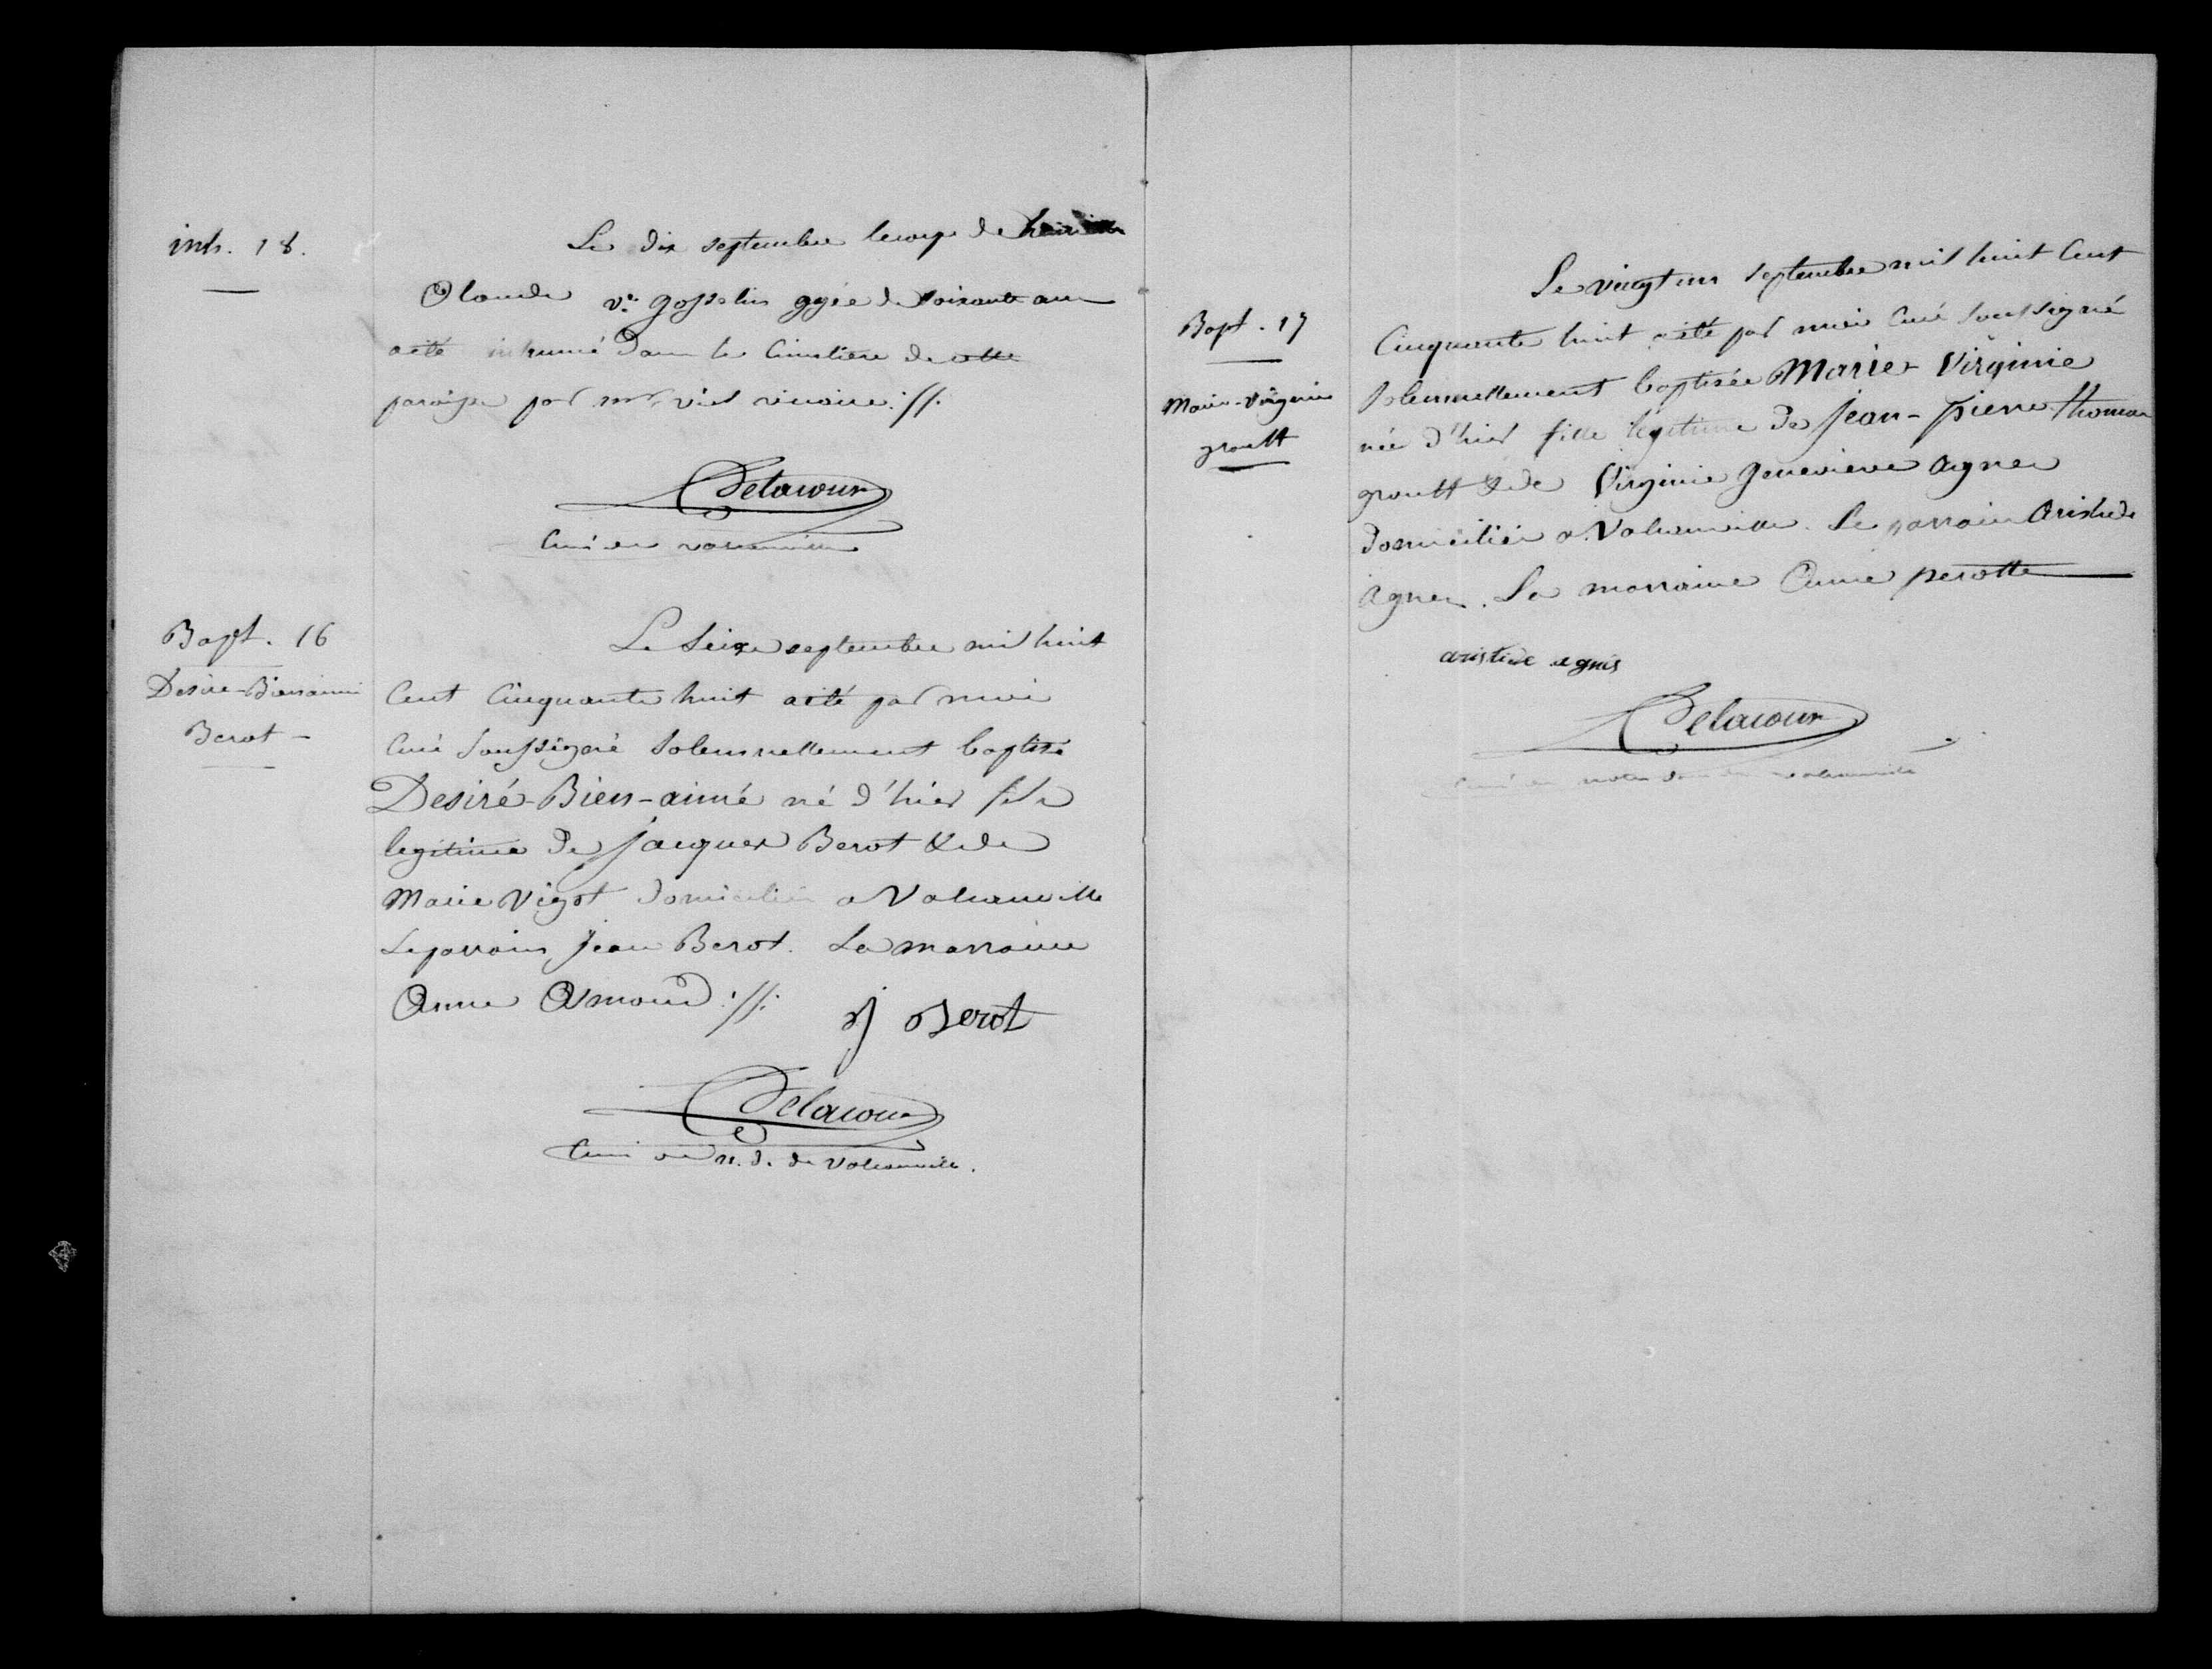 inh. 18.
Le dix septembre le corps de
Olande v.e gosselin agée de soixante ans
a été inhumé dans le Cimetière de cette
paroisse par mr. viel vicaire ://.
Delacour
Curé de valcanville
Bapt. 16
Desiré-Bienaimé
Berot -
Le Seize septembre mil huit
Cent Cinquante huit a été par moi
Curé Soussigné Solennellement baptisé
Desiré-Bien-aimé né d'hier fils
legitime de jacques Berot & de
Marie Vigot domiciliés a Valcanville
Le parrain, Jean Berot. La marraine
Anne Osmond ://.
j Berot
Delacour
Curé de n. d. de Valcanville.
Bapt. 17
Marie-Virginie
groult
Le vingt un septembre mil huit Cent
Cinquante huit a été par moi Curé Soussigné
Solennellement baptisée Marie-Virginie
née d'hier fille légitime de Jean-pierre-thomas
groult & de Virginie genevieve agnes
domiciliés a Valcanville. Le parrain Aristide
Agnes. La marraine Anne perotte
aristide agnes
Delacour
Curé de notre dame de valcanville